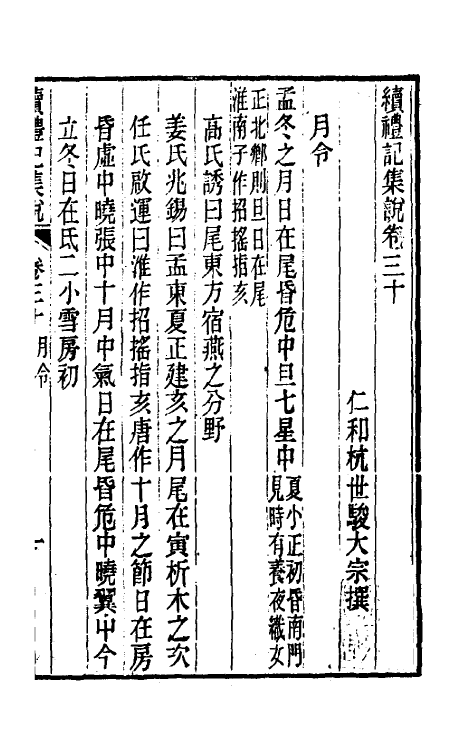 續禮記集說卷三十
仁和杭世駿大宗撰
月令
孟冬之月日在尾昏危中旦七星中夏小正初昏南門
見時有養夜織女
正北鄉則旦日在尾
淮南子作招搖指亥
高氏誘曰尾東方宿燕之分野
姜氏兆錫曰孟東夏正建亥之月尾在寅析木之次
任氏啟運曰淮作招搖指亥唐作十月之節日在房
昏虛中曉張中十月中氣日在尾昏危中曉翼中今
立冬日在氐二小雪房初
續禮記集說
卷三十月令
一